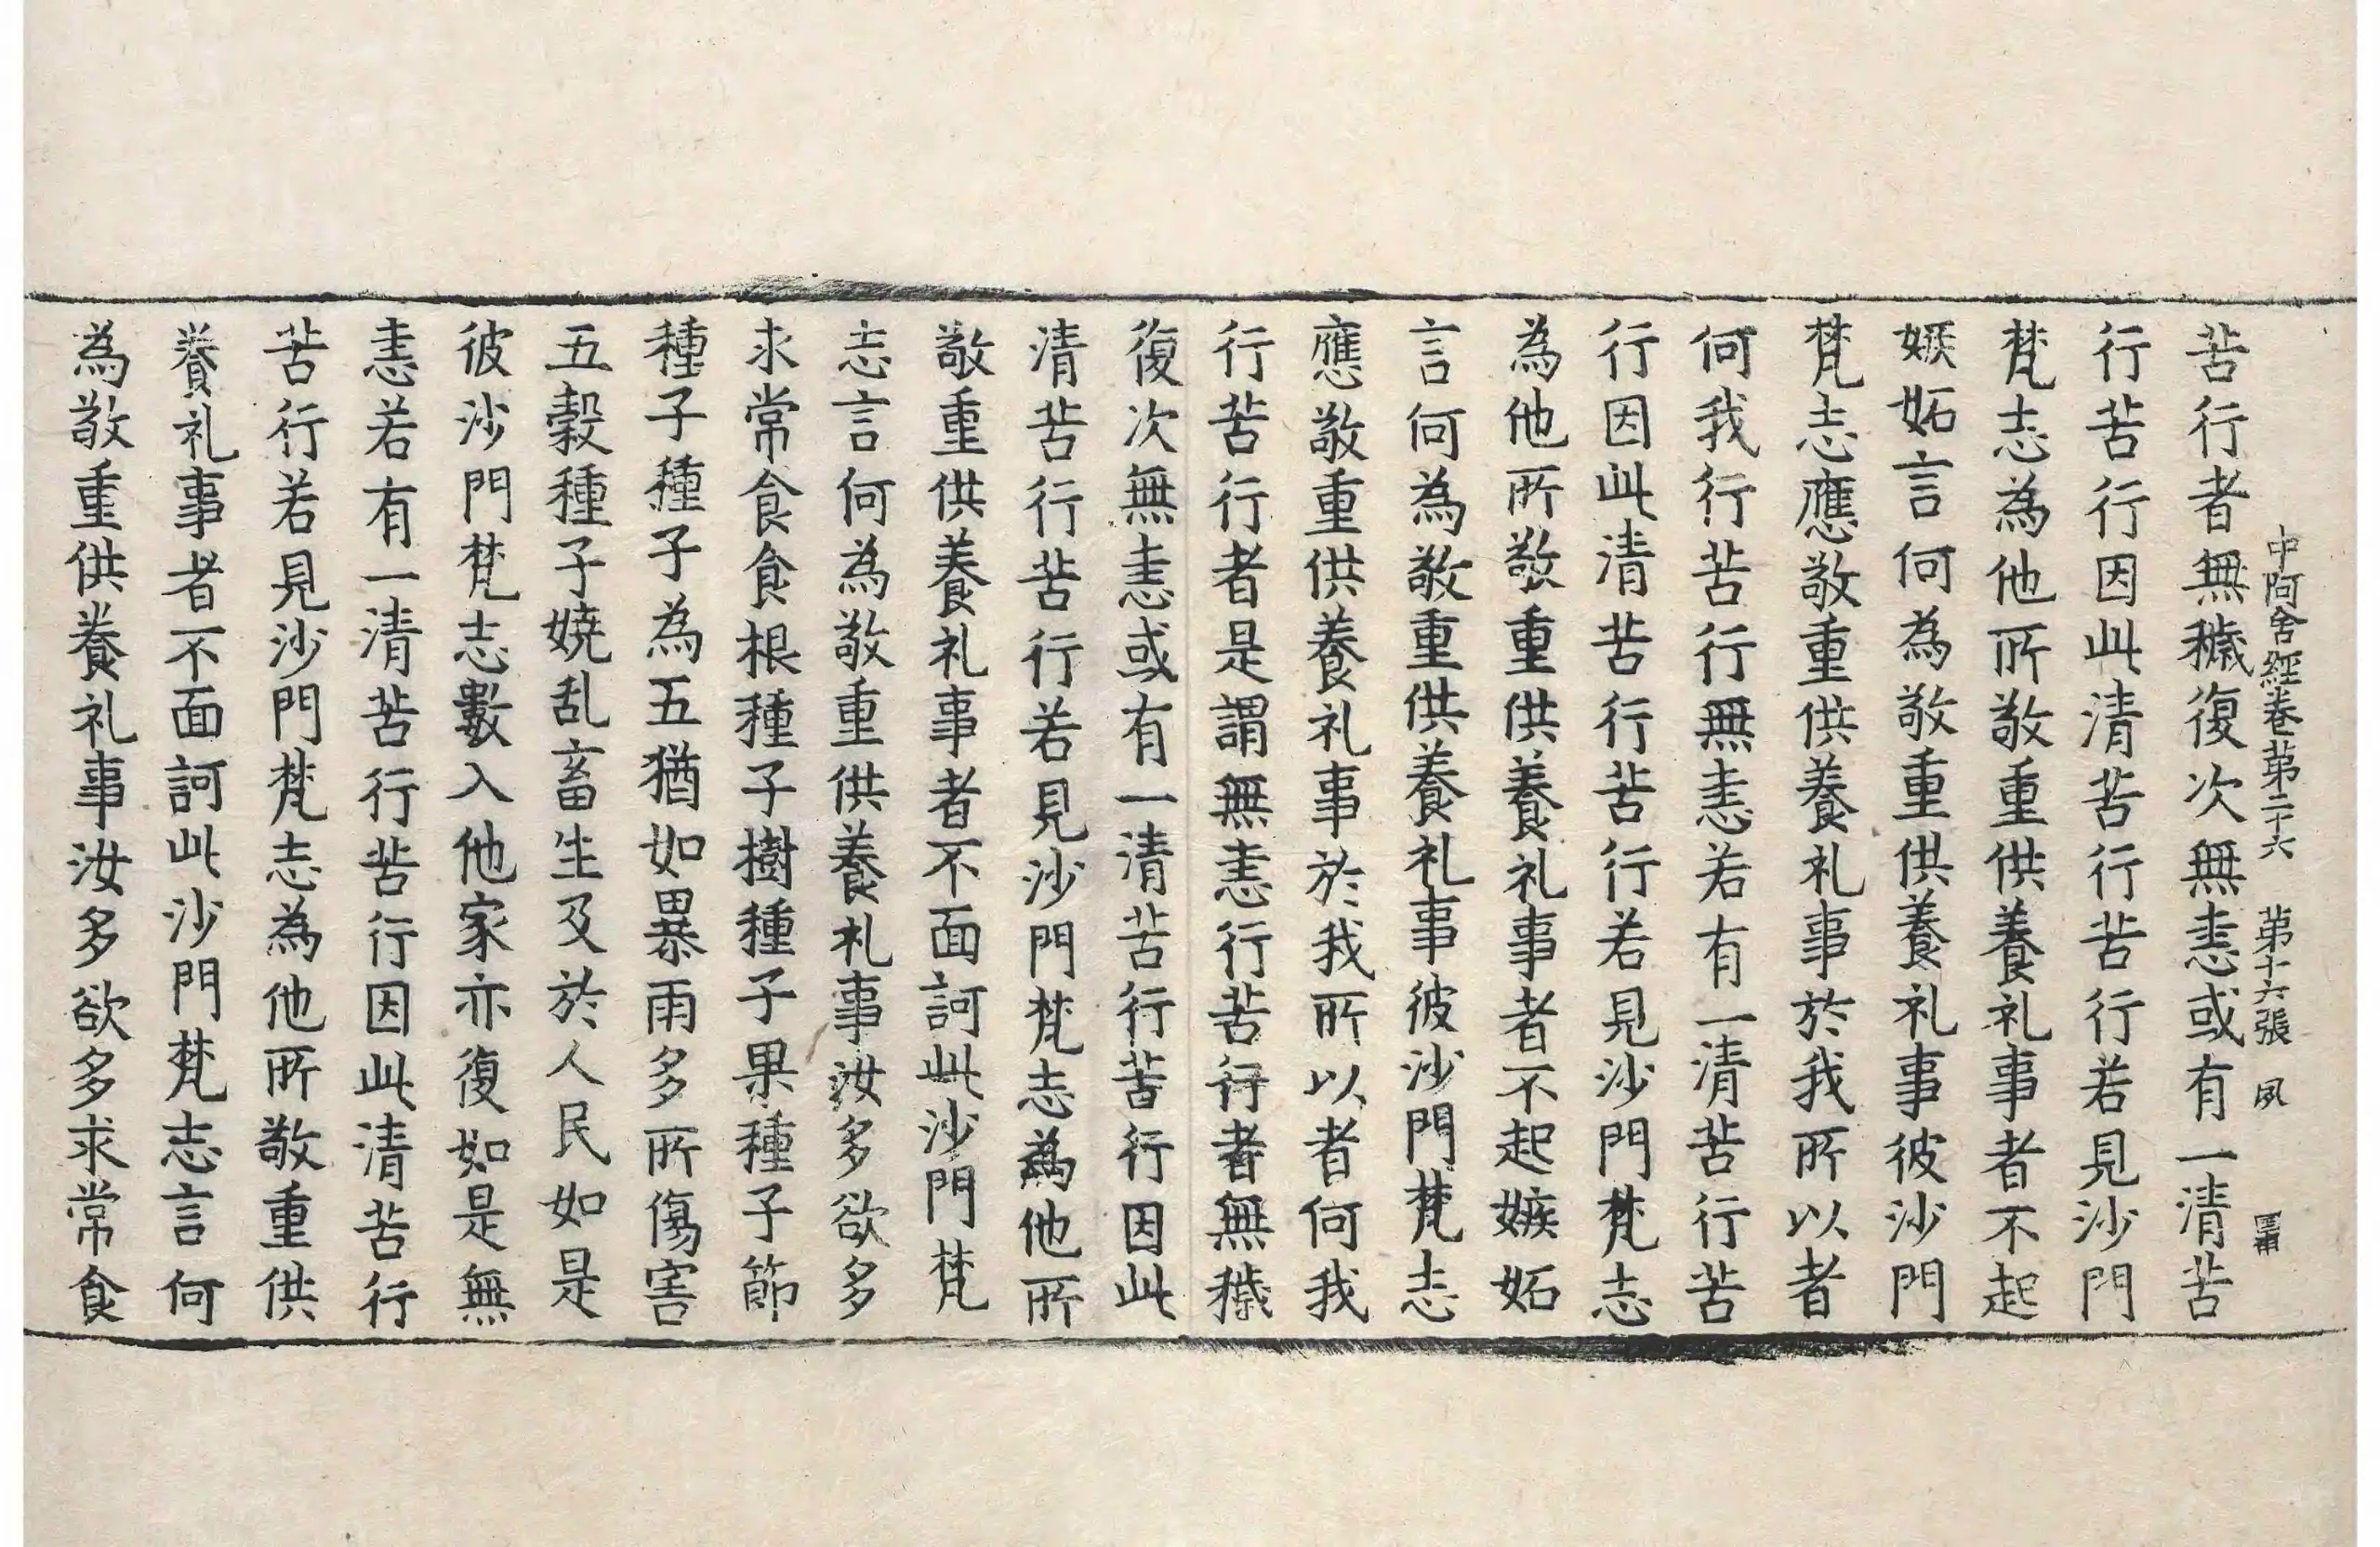 中阿含經卷第二十六 第十六張 夙
苦行者無穢復次無恚或有一清苦
行苦行因此清苦行苦行若見沙門
梵志為他所敬重供養礼事者不起
嫉妬言何為敬重供養礼事彼沙門
梵志應敬重供養礼事於我所以者
何我行苦行無恚若有一清苦行苦
行因此清苦行苦行若見沙門梵志
為他所敬重供養礼事者不起嫉妬
言何為敬重供養礼事彼沙門梵志
應敬重供養礼事於我所以者何我
行苦行者是謂無恚行苦行者無穢
復次無恚或有一清苦行苦行因此
清苦行苦行若見沙門梵志為他所
敬重供養礼事者不面訶此沙門梵
志言何為敬重供養礼事汝多欲多
求常食食根種子樹種子果種子節
種子種子為五猶如暴雨多所傷害
五穀種子嬈乱畜生及於人民如是
彼沙門梵志數入他家亦復如是無
恚若有一清苦行苦行因此清苦行
苦行若見沙門梵志為他所敬重供
養礼事者不面訶此沙門梵志言何
為敬重供養礼事汝多欲多求常食